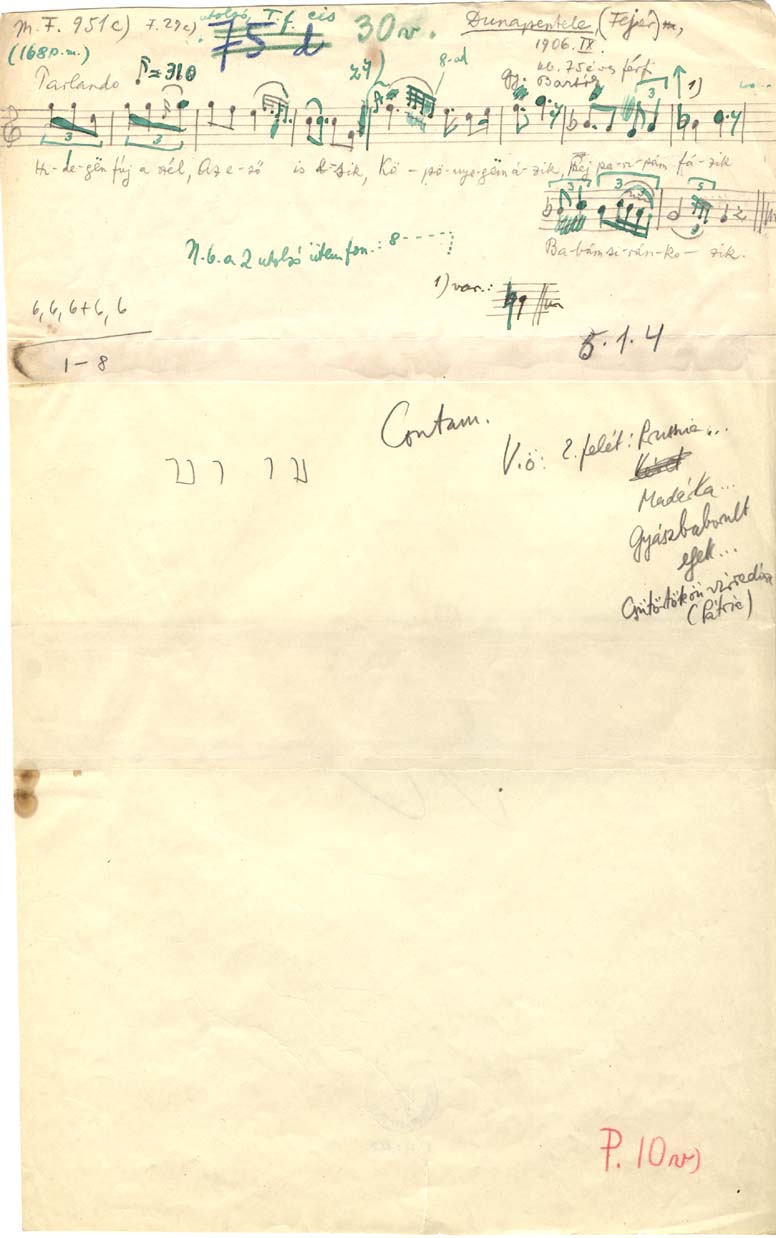 M.F. 951c) F. 29c) utolsó, T.f. cis
(168 p.m.) 75 d 30v. Dunapentele, (Fejér) m,
1906. IX.
kb. 75 éves férfi
gy. Bartók
Parlando ♪=310 8-ad 1)
3 3 3
Hi-de-gën fúj a szél, Az e-ső is e-sik, Kö-pö-nye-gëm á-zik, Fëj pa-ri-pám fá-zik
3 3 5
Ba-bám si-rán-ko-zik.
N.b. a 2 utolsó ütem fon.: 8
1) var.:
6, 6, 6+6, 6
1-8
5.1.4
Contam.
V.ö: 2. felét:
Madárka...
Gyászbaborult
egek...
Csütörtökön virradóra
(Pátria)
P. 10v)